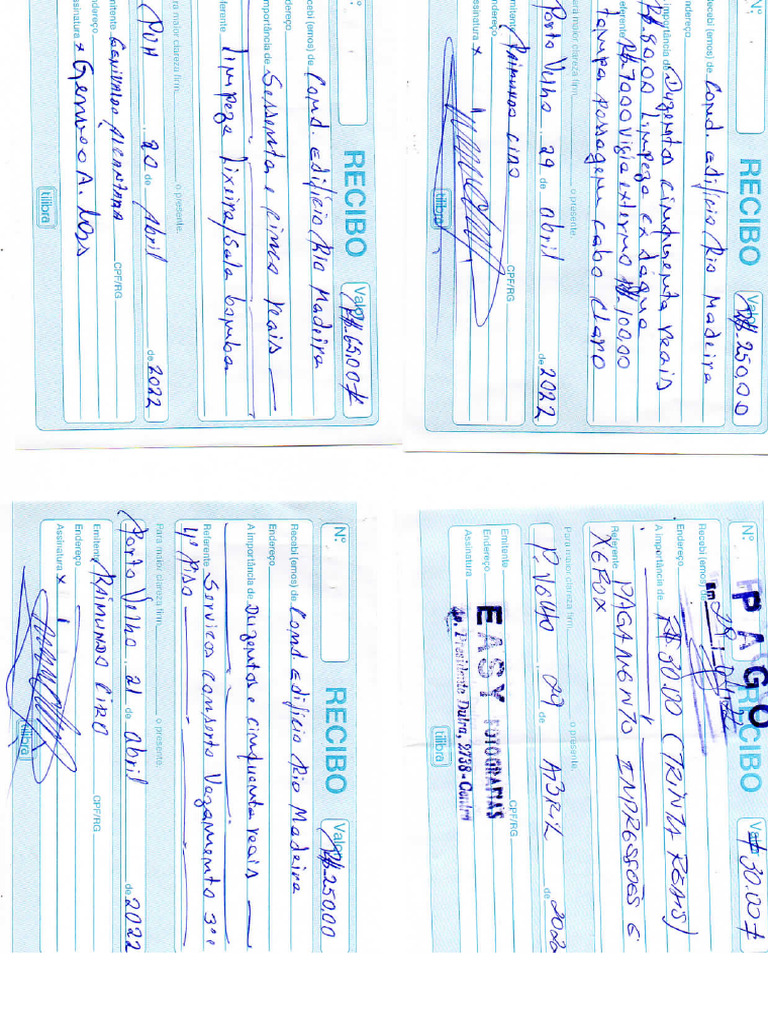 Nº
RECIBO
Valor R$.65,00
Recebi (emos) de Cond. Edifício Rio Madeira
Endereço
A importância de Sessenta e cinco reais
Referente limpeza lixeira/sala bomba
Para maior clareza firm o presente.
PVH 20 de Abril de 2022
Emitente Genivaldo Alcantara CPF/RG
Endereço
Assinatura x
tilibra
Nº
RECIBO
Valor R$.250,00
Recebi (emos) de Cond edifício Rio Madeira
Endereço
A importância de Duzentos cinquenta reais
R$.80,00 limpeza cx dagua
Referente R$.70,00 vigia externo R$.100,00
tampa passagem cabo claro
Para maior clareza firm o presente.
Porto Velho 29 de abril de 2022
Emitente Raimundo Ciro CPF/RG
Endereço
Assinatura x
tilibra
Nº
RECIBO
Valor R$.250,00
Recebi (emos) de Cond edifício Rio Madeira
Endereço
A importância de Duzentos e cinquenta reais
Referente Servicos conserto Vazamento 3º e
4º Piso
Para maior clareza firm o presente.
Porto Velho 21 de abril de 2022
Emitente RAIMUNDO CIRO CPF/RG
Endereço
Assinatura x
tilibra
Nº
RECIBO
Valor 30.00
PAGO
Em
Recebi (emos) de
Endereço
A importância de R$ 30.00 (TRINTA REAIS)
Referente PAGAMENTO IMPRESSÕES E
XEROX
Para maior clareza firm o presente.
P. Velho 29 de ABRIL de 2022
Emitente CPF/RG
EASY FOTOGRAFIAS
Endereço
Av. Presidente Dutra, 2738-Centro
Assinatura
tilibra